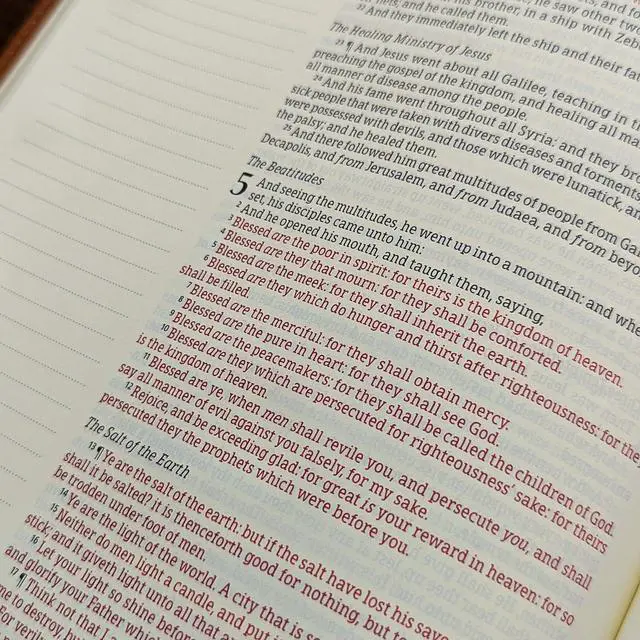 his brother, in a ship with
nets; and he called them.
22 And they immediately left the ship and their
The Healing Ministry of Jesus
23 ¶ And Jesus went about all Galilee, teaching in
preaching the gospel of the kingdom, and healing all
all manner of disease among the people.
24 And his fame went throughout all Syria: and they
sick people that were taken with divers diseases and torments
were possessed with devils, and those which were lunatick,
the palsy; and he healed them.
25 And there followed him great multitudes of people from
Decapolis, and from Jerusalem, and from Judaea, and from
The Beatitudes
5 And seeing the multitudes, he went up into a mountain: and
set, his disciples came unto him:
2 And he opened his mouth, and taught them, saying,
3 Blessed are the poor in spirit: for theirs is the kingdom of heaven.
4 Blessed are they that mourn: for they shall be comforted.
5 Blessed are the meek: for they shall inherit the earth.
6 Blessed are they which do hunger and thirst after righteousness: for the
shall be filled.
7 Blessed are the merciful: for they shall obtain mercy.
8 Blessed are the pure in heart: for they shall see God.
9 Blessed are the peacemakers: for they shall be called the children of God.
10 Blessed are they which are persecuted for righteousness' sake: for theirs
is the kingdom of heaven.
11 Blessed are ye, when men shall revile you, and persecute you, and shall
say all manner of evil against you falsely, for my sake.
12 Rejoice, and be exceeding glad: for great is your reward in heaven: for so
persecuted they the prophets which were before you.
The Salt of the Earth
13 ¶ Ye are the salt of the earth: but if the salt have lost his
shall it be salted? it is thenceforth good for nothing, but to
be trodden under foot of men.
14 Ye are the light of the world. A city that is
15 Neither do men light a candle, and put it
stick; and it giveth light unto all that
16 Let your light so shine before
and glorify your Father which
17 ¶ Think not that I
to destroy,
For verily